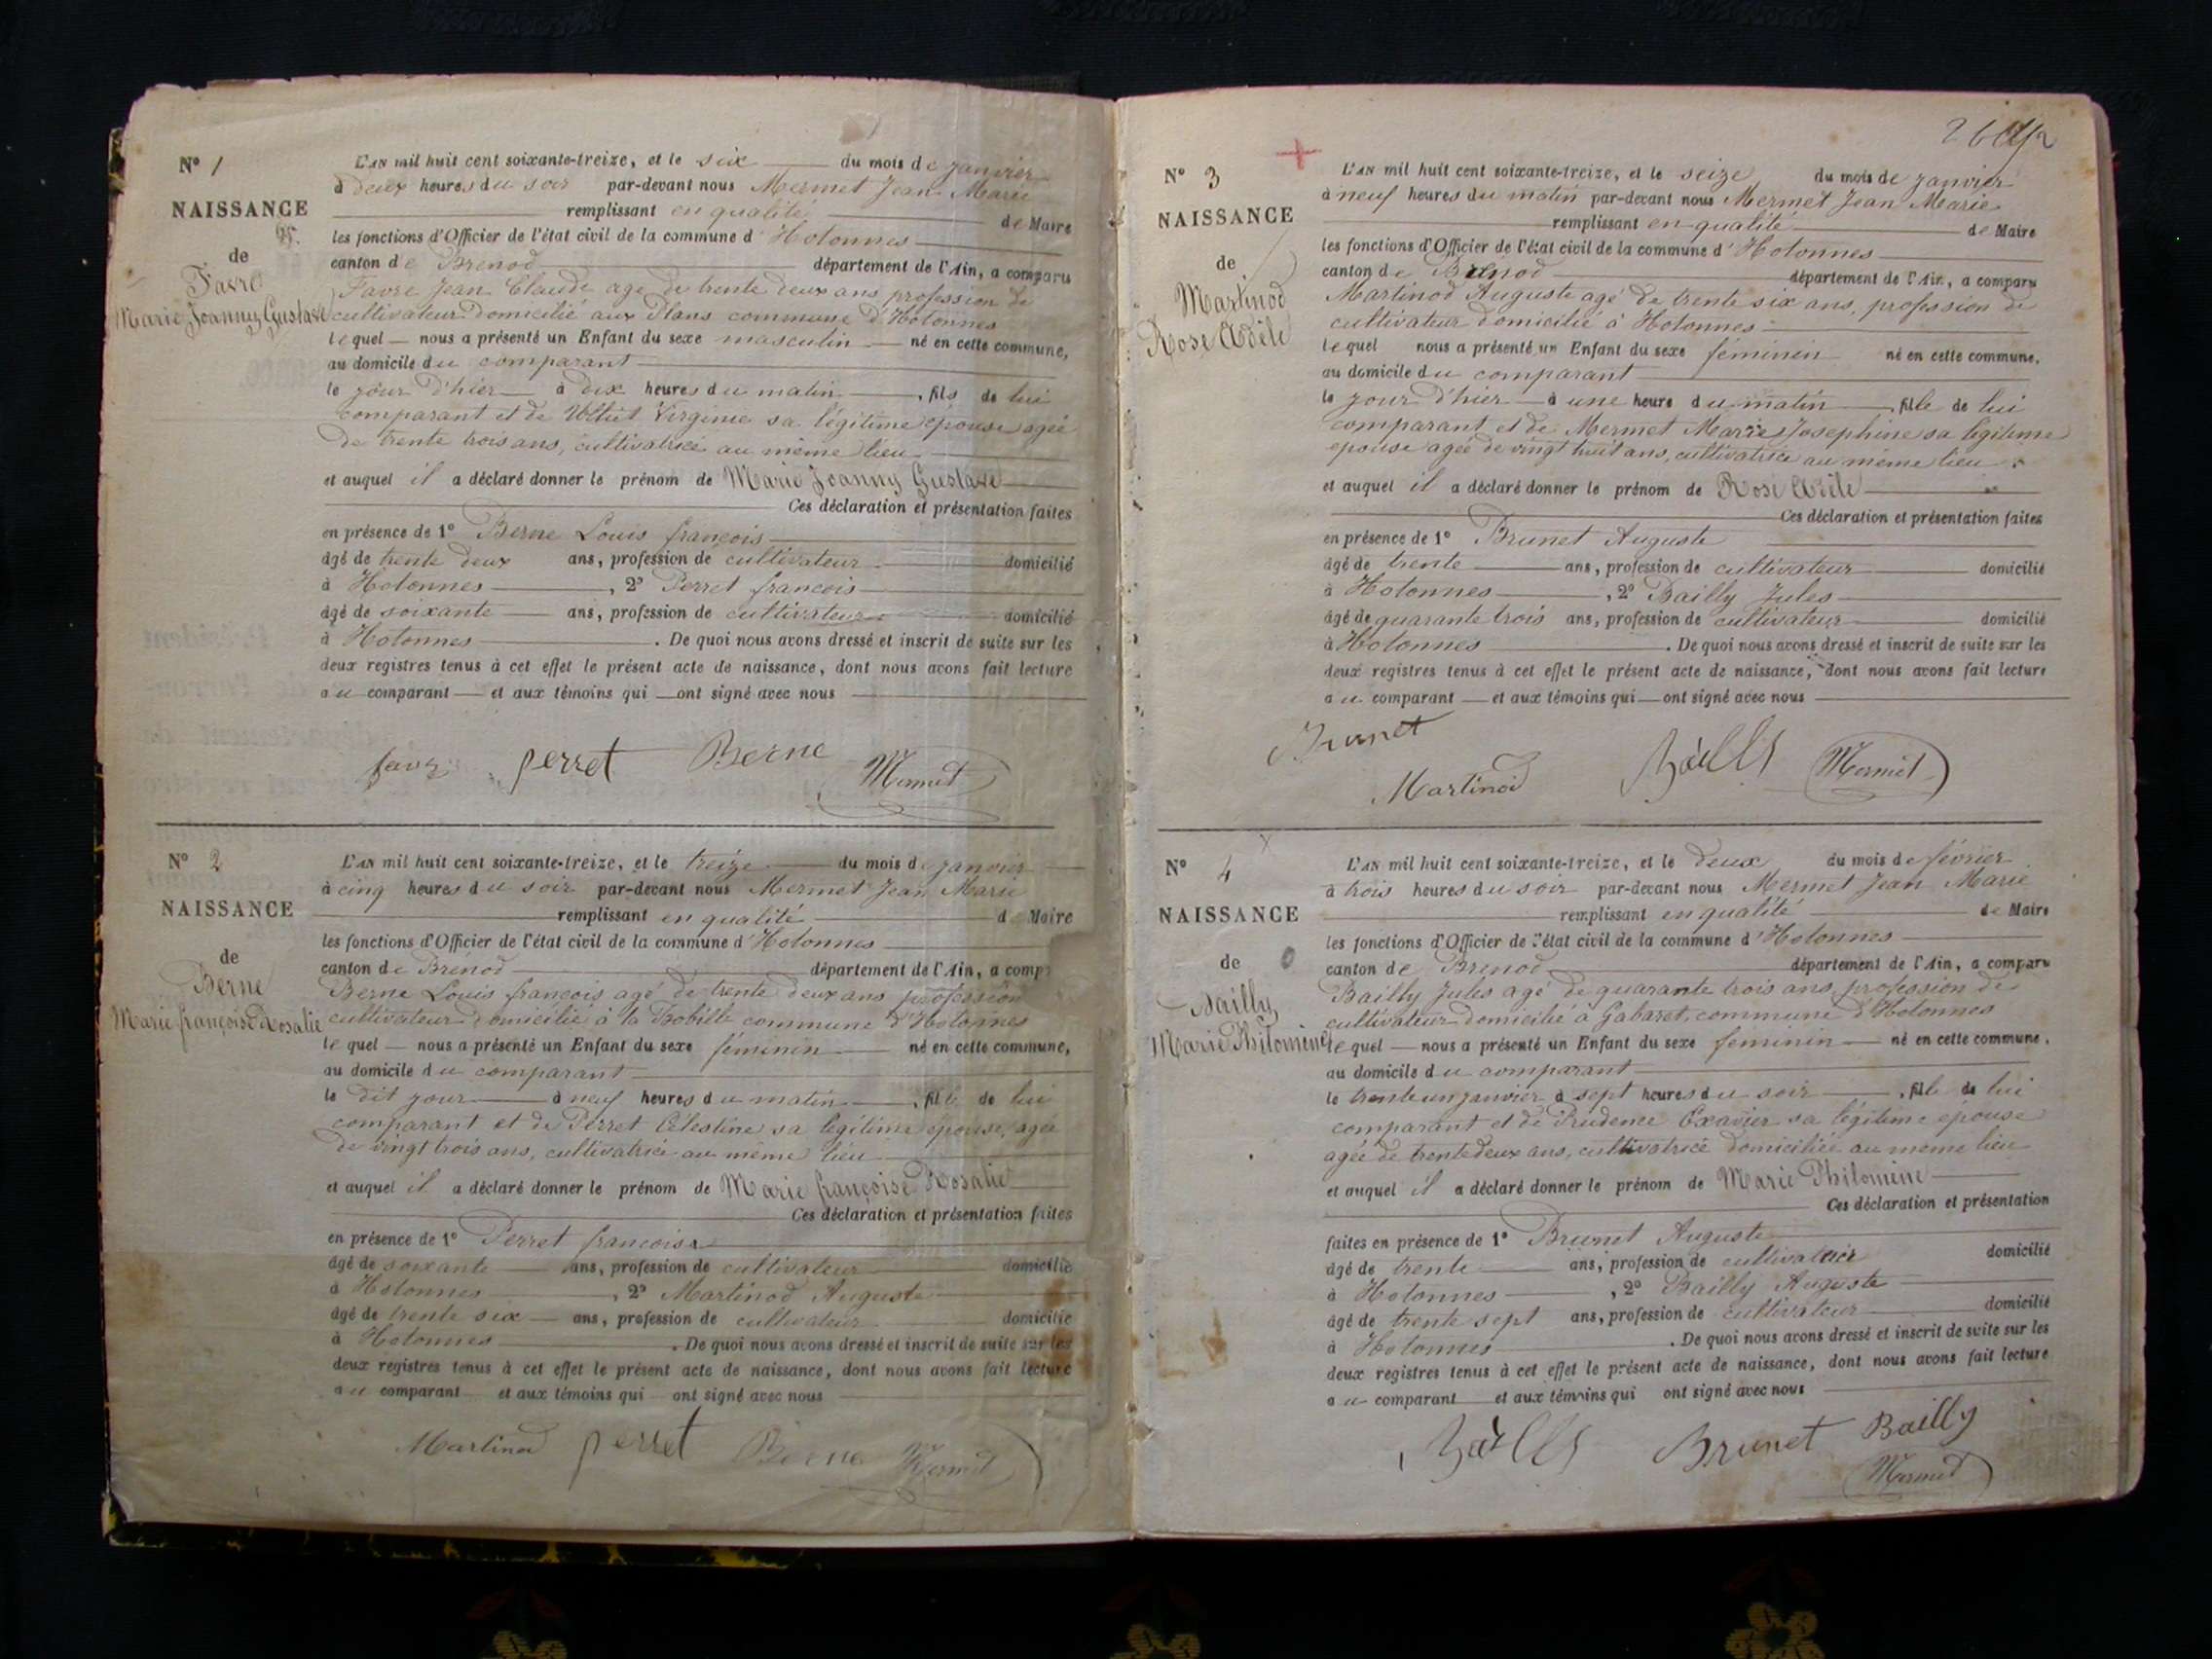 N° 1
NAISSANCE
de
Favre
Marie Joanny Gustave
L'AN mil huit cent soixante-treize, et le six du mois de janvier
à deux heures du soir par-devant nous Mermet Jean Marie
remplissant en qualité de Maire
les fonctions d'Officier de l'état civil de la commune d'Hotonnes
canton de Brenod département de l'Ain, a comparu
Favre Jean Claude agé de trente deux ans profession de
cultivateur domicilié aux Plans commune d'Hotonnes
lequel nous a présenté un Enfant du sexe masculin né en cette commune,
au domicile du comparant
le jour d'hier à dix heures du matin, fils de lui
comparant et de Virginie sa légitime épouse agée
de trente trois ans, cultivatrice au même lieu
et auquel il a déclaré donner le prénom de Marie Joanny Gustave
Ces déclaration et présentation faites
en présence de 1° Berne Louis françois
âgé de trente deux ans, profession de cultivateur domicilié
à Hotonnes, 2° Perret francois
âgé de soixante ans, profession de cultivateur domicilié
à Hotonnes. De quoi nous avons dressé et inscrit de suite sur les
deux registres tenus à cet effet le présent acte de naissance, dont nous avons fait lecture
au comparant et aux témoins qui ont signé avec nous
favre perret Berne Mermet
N° 2
NAISSANCE
de
Berne
Marie françoise Rosalie
L'AN mil huit cent soixante-treize, et le treize du mois de janvier
à cinq heures du soir par-devant nous Mermet Jean Marie
remplissant en qualité de Maire
les fonctions d'Officier de l'état civil de la commune d'Hotonnes
canton de Brénod département de l'Ain, a comp
Berne Louis francois agé de trente deux ans profession
cultivateur domicilié à la commune d'Hotonnes
lequel nous a présenté un Enfant du sexe féminin né en cette commune,
au domicile du comparant
le dit jour à neuf heures du matin, fille de lui
comparant et de Perret Célestine sa légitime épouse, agée
de vingt trois ans, cultivatrice au même lieu
et auquel il a déclaré donner le prénom de Marie françoise Rosalie
Ces déclaration et présentation faites
en présence de 1° Perret francois
âgé de soixante ans, profession de cultivateur domicilié
à Hotonnes, 2° Martinod Auguste
âgé de trente six ans, profession de cultivateur domicilié
à Hotonnes. De quoi nous avons dressé et inscrit de suite sur les
deux registres tenus à cet effet le présent acte de naissance, dont nous avons fait lecture
au comparant et aux témoins qui ont signé avec nous
Martinod perret Berne Mermet
N° 3
NAISSANCE
de
Martinod
Rose Adèle
L'AN mil huit cent soixante-treize, et le seize du mois de janvier
à neuf heures du matin par-devant nous Mermet Jean Marie
remplissant en qualité de Maire
les fonctions d'Officier de l'état civil de la commune d'Hotonnes
canton de Brénod département de l'Ain, a comparu
Martinod Auguste agé de trente six ans, profession de
cultivateur domicilié à Hotonnes
lequel nous a présenté un Enfant du sexe féminin né en cette commune.
au domicile du comparant
le jour d'hier à une heure du matin, fille de lui
comparant et de Mermet Marie Josephine sa légitime
épouse agée de vingt huit ans, cultivatrice au même lieu
et auquel il a déclaré donner le prénom de Rose Adèle
Ces déclaration et présentation faites
en présence de 1° Brunet Auguste
âgé de trente ans, profession de cultivateur domicilié
à Hotonnes, 2° Bailly Jules
âgé de quarante trois ans, profession de cultivateur domicilié
à Hotonnes. De quoi nous avons dressé et inscrit de suite sur les
deux registres tenus à cet effet le présent acte de naissance, dont nous avons fait lecture
au comparant et aux témoins qui ont signé avec nous
Brunet
Martinod Bailly Mermet
N° 4
NAISSANCE
de
Bailly
Marie Philomine
L'AN mil huit cent soixante-treize, et le deux du mois de février
à trois heures du soir par-devant nous Mermet Jean Marie
remplissant en qualité de Maire
les fonctions d'Officier de l'état civil de la commune d'Hotonnes
canton de Brenod département de l'Ain, a comparu
Bailly Jules agé de quarante trois ans, profession de
cultivateur domicilié à Gabaret, commune d'Hotonnes
lequel nous a présenté un Enfant du sexe féminin né en cette commune.
au domicile du comparant
le trente un janvier à sept heures du soir, fille de lui
comparant et de Prudence Exavier sa légitime épouse
agée de trente deux ans, cultivatrice domiciliée au même lieu
et auquel il a déclaré donner le prénom de Marie Philomine
Ces déclaration et présentation
faites en présence de 1° Brunet Auguste
âgé de trente ans, profession de cultivateur domicilié
à Hotonnes, 2° Bailly Auguste
âgé de trente sept ans, profession de cultivateur domicilié
à Hotonnes. De quoi nous avons dressé et inscrit de suite sur les
deux registres tenus à cet effet le présent acte de naissance, dont nous avons fait lecture
au comparant et aux témoins qui ont signé avec nous
Bailly Brunet Bailly
Mermet